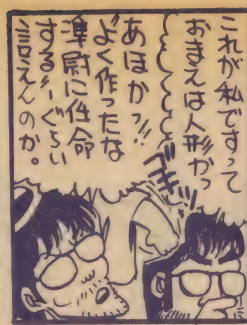 これが私ですって
おまえは人形かっ
あほかっ!!
よく作ったな
准尉に任命
する!ぐらい
言えんのか。
ゴキッ